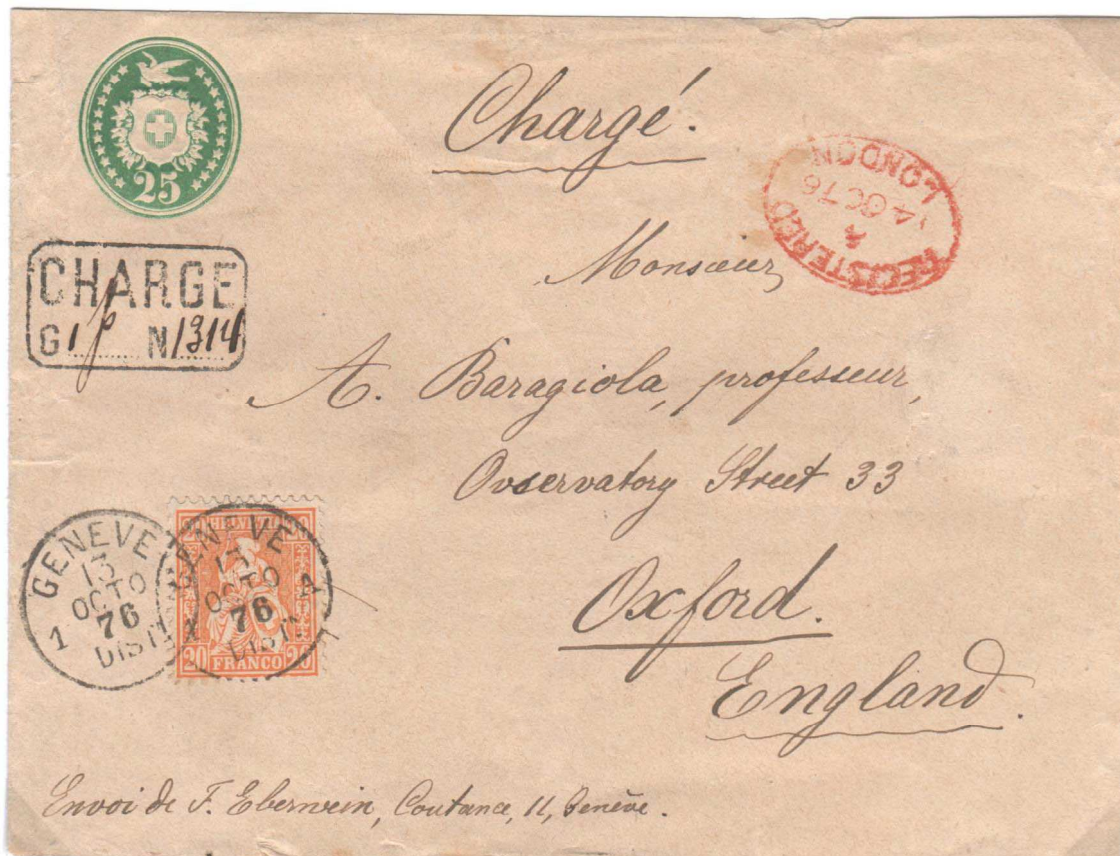 25
Chargé.
LONDON
14 OC 76
A
REGISTERED
CHARGE
G 1 N 1314
Monsieur,
A. Baragiola, professeur,
Ovservatory Street 33
Oxford.
England.
GENEVE
13
OCTO
76
1 DIST
GENEVE
13
OCTO
76
DIST
HELVETIA
20 FRANCO 20
Envoi de F. Eberwein, Coutance, 11, Genève.